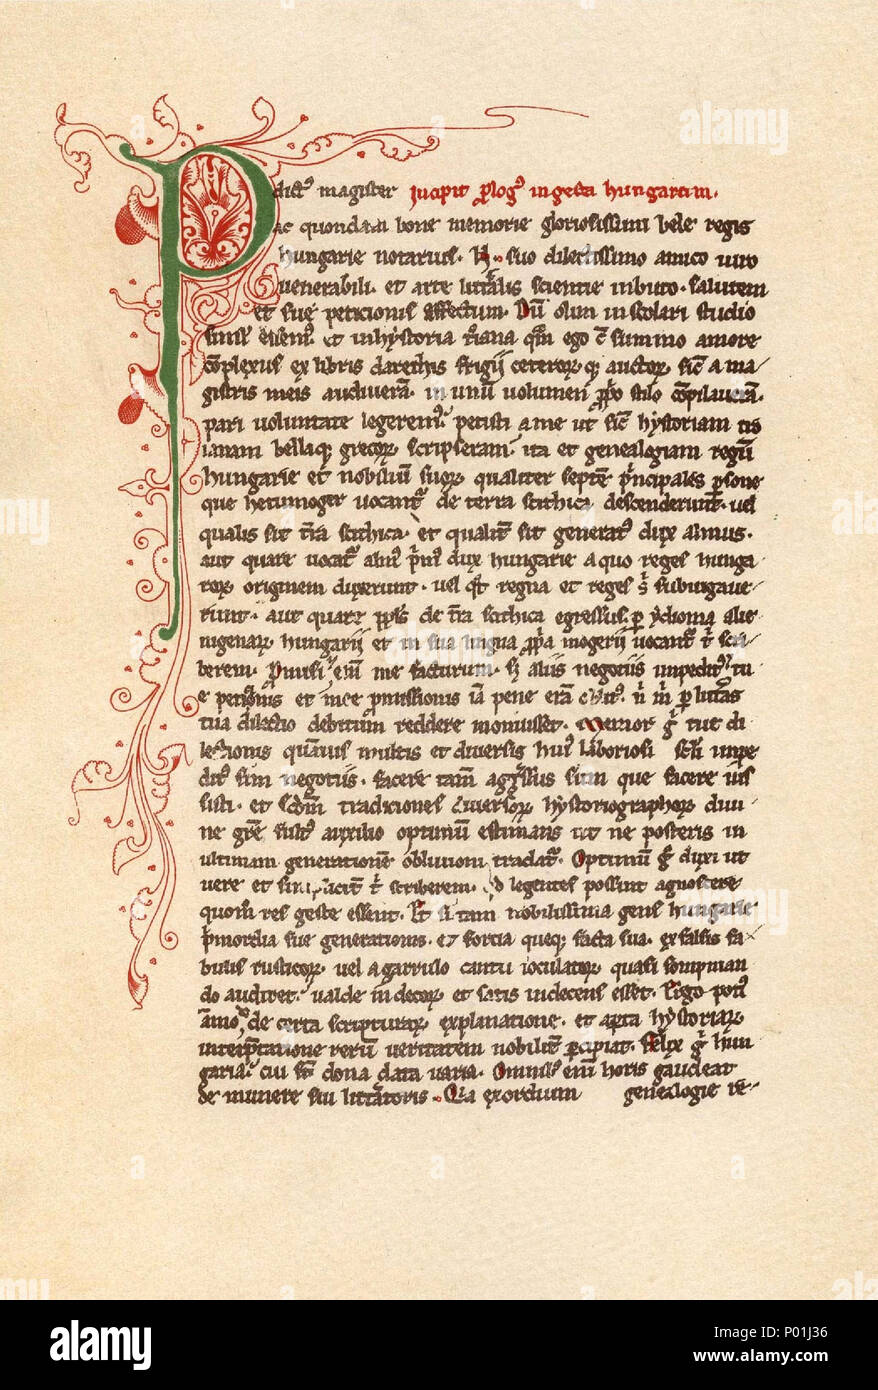 P dictus magister Incipit prologus in gesta hungarum.
ac quondam bone memorie gloriosissimi bele regis
hungarie notarius. N. suo dilectissimo amico uiro
uenerabili. et arte litt̄alis scientie inbuto. salutem
et sue peticionis effectum. Dū olim in scolari studio
simul essem᷒. et in hystoria t᷒iana qm̄ ego cū summo amore
cōplexus ex libris darethis frigii ceteroꝝ qꝫ auctoꝝ, sic̄ a ma/
gistris meis audiuerā. in unū uolumen ꝓprio stilo cōpilauerā.
pari uoluntate legerem᷒. petisti a me ut sic̄ hystoriam tro
ianam bellaqꝫ grecoꝝ scripseram. ita et genealogiam regū
hungarie et nobiliū suoꝝ, qualiter septē p̄ncipales ꝑsone
que hetumoger uocant᷒ de terra scithica descenderunt. uel
qualis sit t̄ra scithica. et qualit̄ sit generat᷒ dux almus.
aut quare uocat᷒ alm᷒ p̄m᷒ dux hungarie a quo reges hunga
roꝝ originem duxerunt. uel qt̄ regna et reges s̄ subiugaue/
riunt. aut quare ppl̄s de t̄ra scithica egressus. ꝑ ydioma alie
nigenaꝝ hungarii et in sua lingua ꝓpria mogerii uocant᷒ t᷒ scri/
berem. Promisi et̄iī me facturum. sꝫ aliis negotiis impedit᷒, tu
e petitionis et mee ꝓmissionis iā pene erā oblit᷒. ni m̄ ꝑ litt̄as
tua dilectio debitum reddere monuisset. Memor g̊ tue di
lectionis quāuis multis et diuersis hui᷒ laboriosi scl̄i impe
dit᷒ sim negotiis. facere tam̄ aggressus sum que facere ius
sisti. et scdm̄ traditiones diuersoꝝ hystoriographoꝝ diui/
ne grē fult᷒ auxilio optimū estimans ut ne posteris in
ultimam generationē obliuioni tradat᷒. Optimū g̊ duxi ut
uere et simpliciter t᷒ scriberem. quod legentes possint agnoscere
quom̊ res geste essent. Et si tam nobilissima gens hungarie
p̄mordia sue generationis. et fortia queqꝫ facta sua. ex falsis fa/
bulis rusticoꝝ, uel a garrulo cantu ioculatoꝝ, quasi sompnian
do audiret. ualde indecoꝝ et satis indecens esset. Ergo poti᷒
ām̊ de certa scripturaꝝ explanatione. et aꝑta hystoriaꝝ
interp̄tatione rerū ueritatem nobilit̄ ꝑcipiat. Felix g̊ hun
garia. cui st̄ dona data uaria. Omnibus eī horis gaudeat
de munere sui litt̄atoris. Quia exordium genealogie re/
alamy
Image ID: P01J36
www.alamy.com